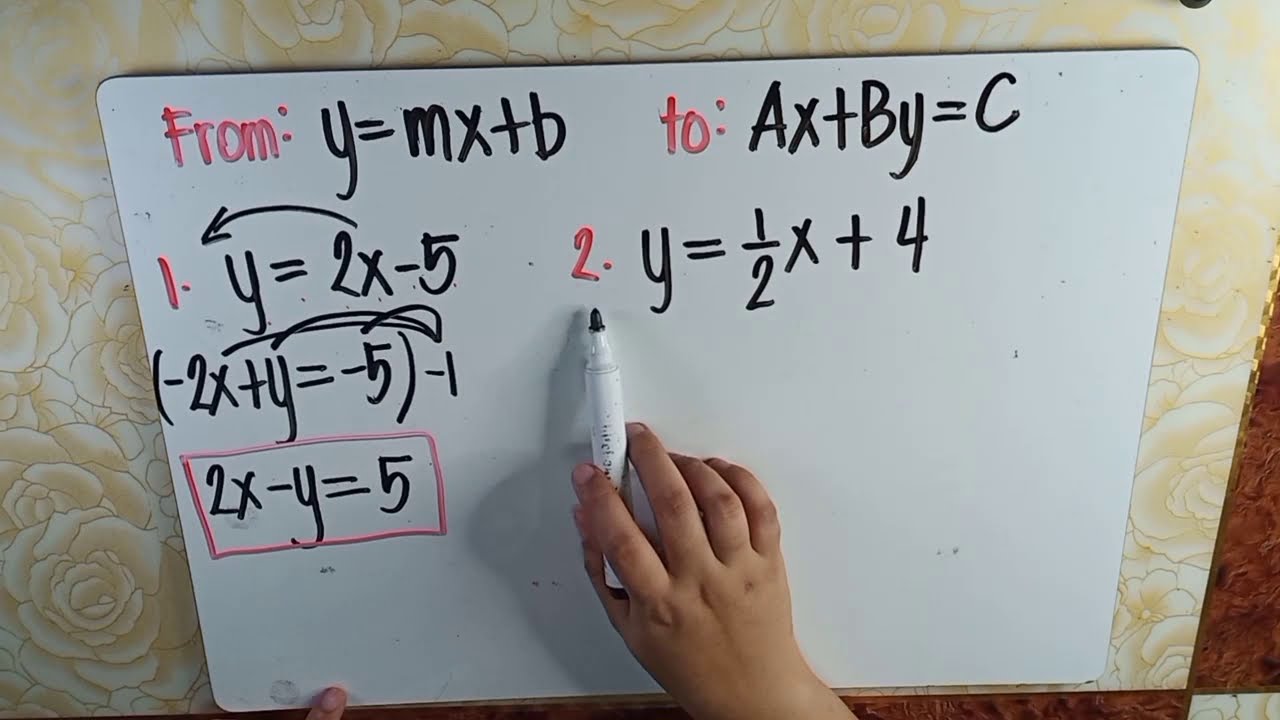 From: y=mx+b to: Ax+By=C
1. y=2x-5
(-2x+y=-5)-1
2x-y=5
2. y=1/2x+4